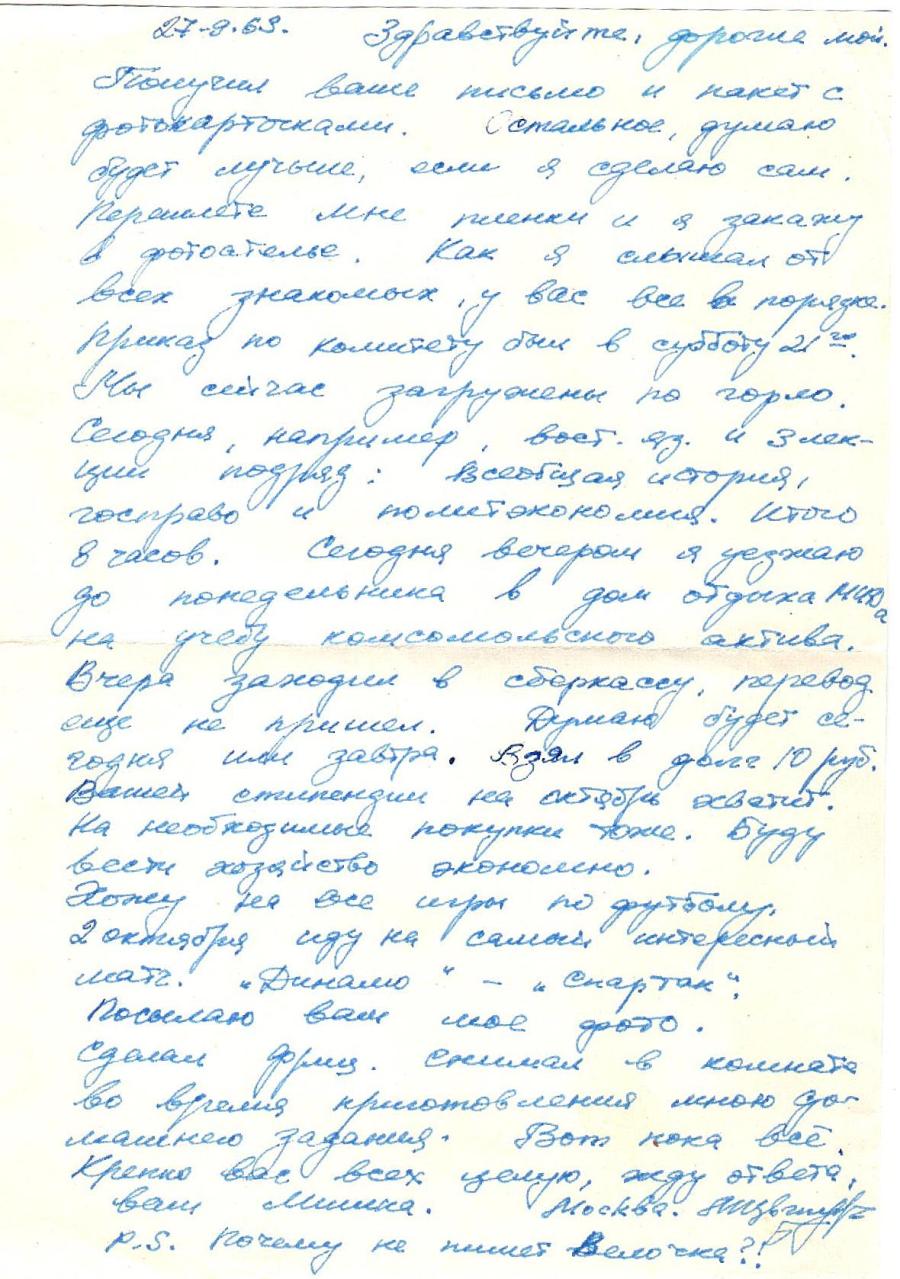 27-9.63. Здравствуйте, дорогие мои.
Получил ваше письмо и пакет с
фотокарточками. Остальное, думаю
будет лучьше, если я сделаю сам.
Перешлете мне пленки и я закажу
в фотоателье. Как я слышал от
всех знакомых, у вас все в порядке.
Приказ по комитету был в субботу 21го.
Мы сейчас загружены по горло.
Сегодня, например, вост. яз. и 3 лек-
ции подряд: Всеобщая история,
госправо и политэкономия. Итого
8 часов. Сегодня вечером я уезжаю
до понедельника в дом отдыха МИДа
на учебу комсомольского актива.
Вчера заходил в сберкассу, перевод
еще не пришел. Думаю будет се-
годня или завтра. Взял в долг 10 руб.
Вашей стипендии на октябрь хватит.
На необходимые покупки тоже. Буду
вести хозяйство экономно.
Хожу на все игры по футболу.
2 октября иду на самый интересный
матч. „Динамо" – „Спартак".
Посылаю вам мое фото.
Сделал фриц. Снимал в комнате
во время приготовления мною до-
машнего задания. Вот пока всё.
Крепко вас всех целую, жду ответа,
ваш Мишка. Москва.
P.S. Почему не пишет Велочка?!